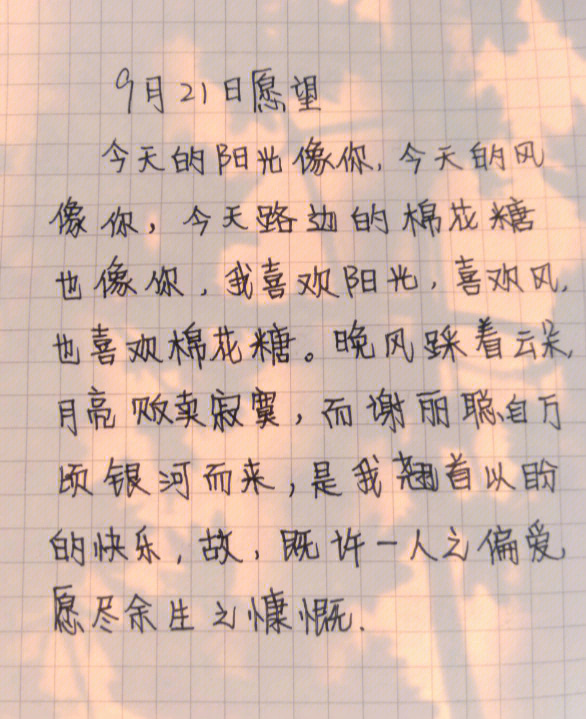 9月21日愿望
今天的阳光像你，今天的风
像你，今天路边的棉花糖
也像你，我喜欢阳光，喜欢风，
也喜欢棉花糖。晚风踩着云朵，
月亮贩卖寂寞，而谢丽聪自万
顷银河而来，是我翘首以盼
的快乐，故，既许一人之偏爱，
愿尽余生之慷慨．